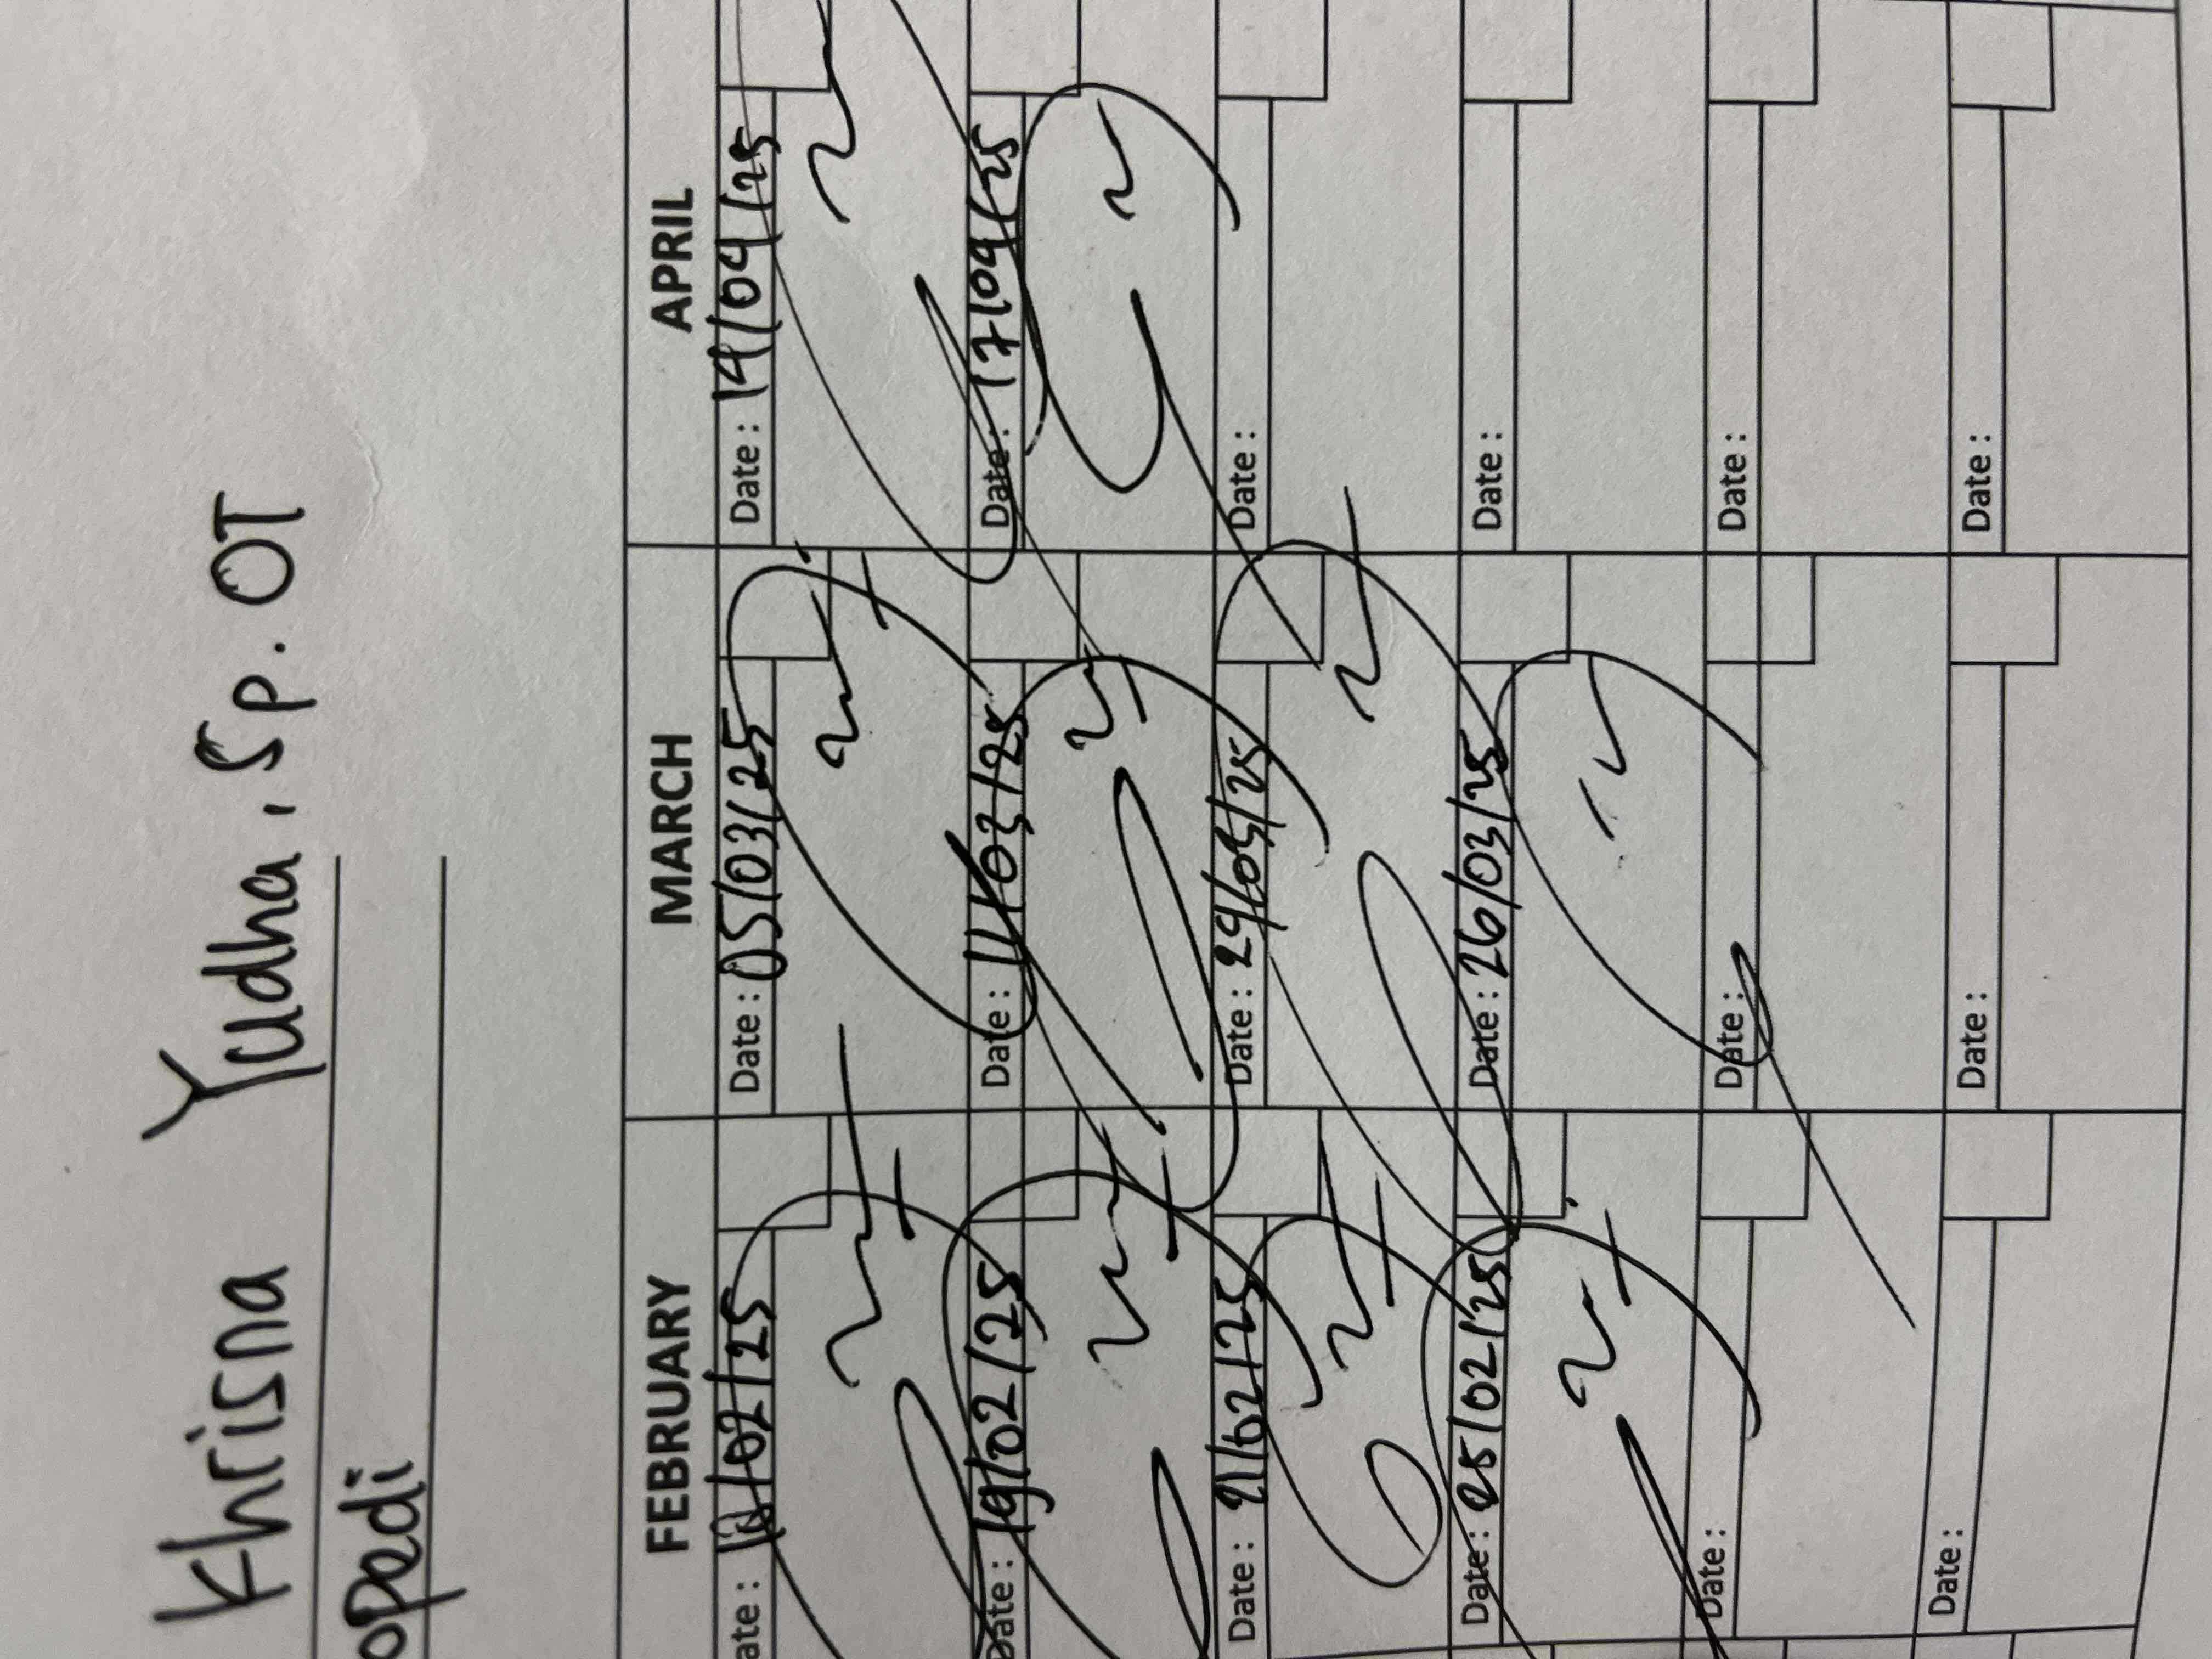 Khrisna Yudha, Sp. OT
opedi
FEBRUARY MARCH APRIL
Date: Date: 05/03/25 Date: 14/04/25
Date: 19/02/25 Date: 11/03/25 Date: 17/04/25
Date: 21/02/25 Date: 24/03/25 Date:
Date: 25/02/25 Date: 26/03/25 Date:
Date: Date: Date:
Date: Date: Date: